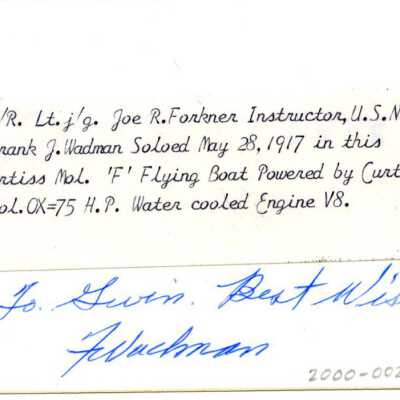 /R. Lt. j/g. Joe R. Forkner Instructor, U.S.N
rank J. Wadman Soloed May 28, 1917 in this
rtiss Mol. 'F' Flying Boat Powered by Curt
ol. OX=75 H.P. Water cooled Engine V8.
To Best Wis
FWadman
2000-002